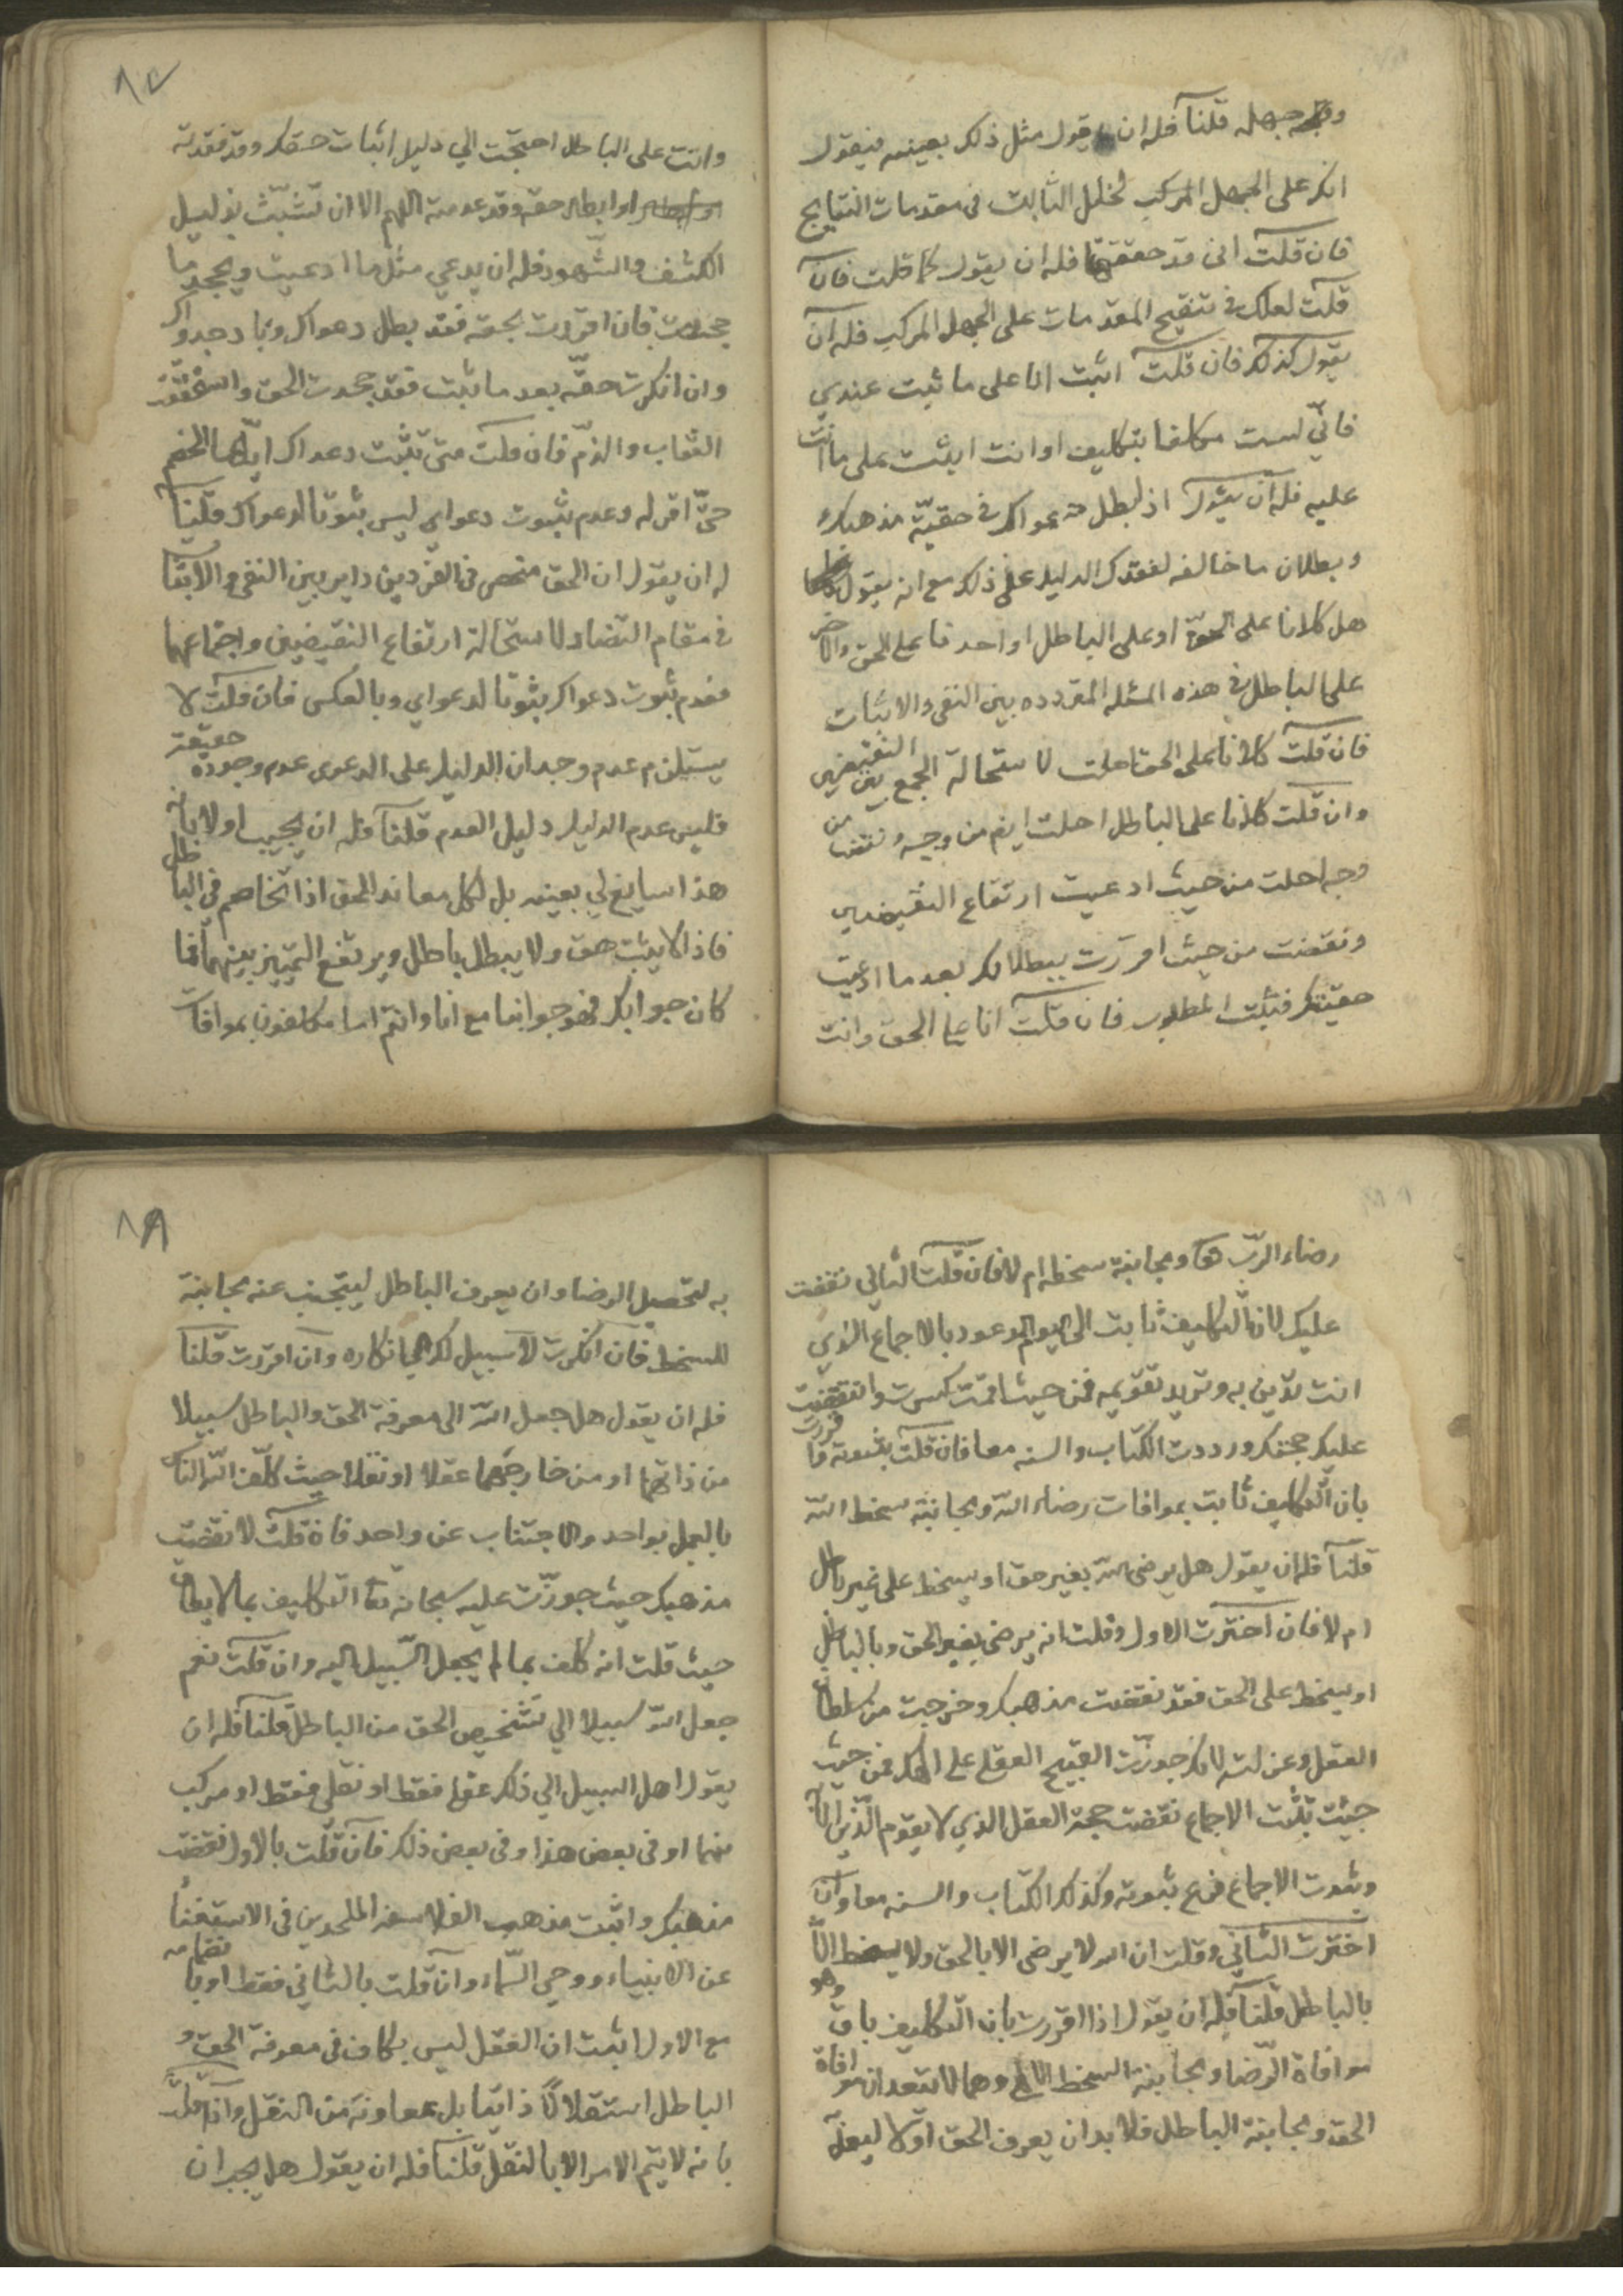 وجه جهله قلنا فله ان يقول مثل ذلك بعينه فيقول
انك على الجهل المركب لخلل الثابت في مقدمات النتايج
فان قلت اني قد حققتها فله ان يقول كما قلت فان
قلت لعلك في تنقيح المقدمات على الجهل المركب فله ان
يقول كذلك فان قلت اثبت انا على ما ثبت عندي
فاني لست مكلفا بتكليف او انت اثبت على ما انت
عليه فله ان يقول اذ لبطل دعواك في حقية مذهبك
وبطلان ما خالفه لفقدك الدليل على ذلك مع انه يقول
هل كلانا على الحق او على الباطل او احدنا على الحق والاخر
على الباطل في هذه المسئلة المترددة بين النفي والاثبات
فان قلت كلانا على الحق احلت لاستحالة الجمع بين النقيضين
وان قلت كلانا على الباطل احلت ايض من وجه ونقضت من
وجه احلت من حيث ادعيت ارتفاع النقيضين
ونقضت من حيث اقررت ببطلانك بعد ما ادعيت
حقيتك فثبت المطلوب فان قلت انا على الحق وانت
٨٧
وانت على الباطل احتجت الي دليل اثبات حقك وقد فقدته
او ابطال حقه وقد عدمته اللهم الا ان تتشبث بذليل
الكشف والشهود فله ان يدعي مثل ما ادعيت ويجحد ما
جحدت فان اقررت بحقه فقد بطل دعواك وباد جدواك
وان انكرت حقه بعد ما ثبت فقد جحدت الحق واستحققت
العقاب والذم فان قلت متى تثبت دعواك ايها الخصم
حتى اقر له وعدم ثبوت دعواي ليس بثبوتا لدعواك قلنا
له ان يقول ان الحق منحصر في الفردين داير بين النفي والاثبات
في مقام التضاد لاستحالة ارتفاع النقيضين واجتماعهما
فعدم ثبوت دعواك ثبوتا لدعواي وبالعكس فان قلت لا
يستلزم عدم وجدان الدليل على الدعوى عدم وجوده حقيقة
فليس عدم الدليل دليل العدم قلنا فله ان يجيب اولا بان
هذا سايغ لي بعينه بل لكل معاند المحق اذا تخاصم في الباطل
فاذا لا يثبت حق ولا يبطل باطل ويرتفع التمييز بينهما فما
كان جوابك فهو جوابنا مع انا وانتم اسا مكلفون بموافات
رضاء الرب تعا ومجانبة سخطه ام لا فان قلت الثاني نقضت
عليك لان التكليف ثابت الى اليوم الموعود بالاجماع الذي
انت تدين به وتريد تقويمه فمن حيث اقمت كسرت وانتقضت
عليك حجتك ورددت الكتاب والسنه معا فان قلت بثبوته واقررت
بان التكليف ثابت بموافات رضاء الله ومجانبة سخط الله
قلنا فله ان يقول هل يرضى الله بغير حق او يسخط على غير باطل
ام لا فان اخترت الاول وقلت انه يرضى بغير الحق وبالباطل
او يسخط على الحق فقد نقضت مذهبك وخرجت من سلطان
العقل وعزلته لانك جوزت القبيح العقلي على الله فمن حيث
جيئت تثبت الاجماع نقضت حجة العقل الذي لا يقوم الدين الا به
وثبوت الاجماع فرع ثبوته وكذلك الكتاب والسنه معا وان
اخترت الثاني وقلت ان الله لا يرضى الا بالحق ولا يسخط الا
بالباطل قلنا فله ان يقول اذا اقررت بان التكليف باق وهو
موافاة الرضا ومجانبة السخط وهما لا تتعدان موافاة
الحق ومجانبة الباطل فلا بد ان يعرف الحق اولا ليعمل
٨٩
به لتحصيل الرضا وان يعرف الباطل ليتجنب عنه مجانبة
للسخط فان انكرت لا سبيل لك الي انكاره وان اقررت قلنا
فله ان يقول هل جعل الله الى معرفة الحق والباطل سبيلا
من ذاتهما او من خارجهما عقلا او نقلا حيث كلف الله الناس
بالعمل بواحد والاجتناب عن واحد فان قلت لا نقضت
مذهبك حيث جوزت عليه سبحانه تعا التكليف بما لا يطاق
حيث قلت انه كلف بما لم يجعل السبيل اليه وان قلت نعم
جعل الله سبيلا الي تشخيص الحق من الباطل قلنا فله ان
يقول اهل السبيل الي ذلك عقلي فقط او نقلي فقط او مركب
منهما او في بعض هذا وفي بعض ذلك فان قلت بالاول نقضت
مذهبك واثبت مذهب الفلاسفه الملحدين في الاستغناء
عن الانبياء ووحي السماء وان قلت بالثاني فقط او بانضمامه
مع الاول اثبت ان العقل ليس بكاف في معرفة الحق و
الباطل استقلالا ذاتيا بل بمعاونة من النقل واذا قلت
بانه لا يتم الامر الا بالنقل قلنا فله ان يقول هل يجب ان